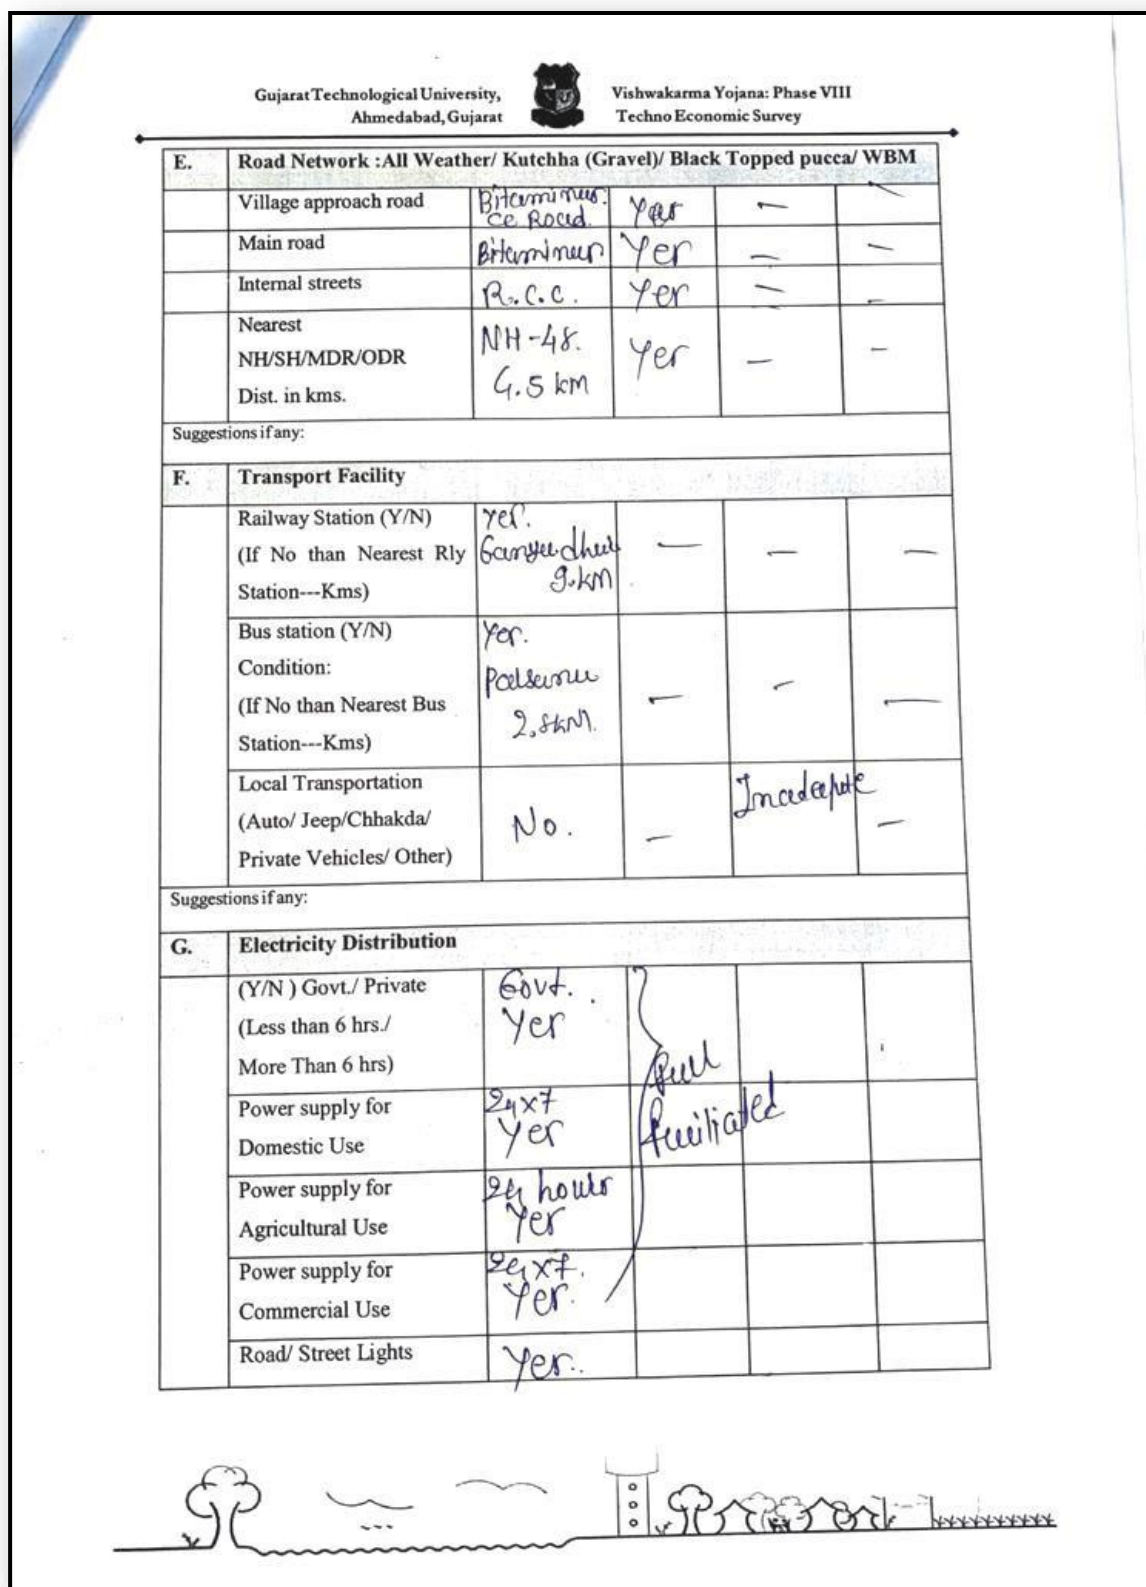 Gujarat Technological University,
Ahmedabad, Gujarat
Vishwakarma Yojana: Phase VIII
Techno Economic Survey
E. Road Network :All Weather/ Kutchha (Gravel)/ Black Topped pucca/ WBM
Village approach road
Yes — —
Main road Yer — —
Internal streets R.C.C. Yer — —
Nearest
NH/SH/MDR/ODR
Dist. in kms.
NH-48.
4.5 km
Yer — —
Suggestions if any:
F. Transport Facility
Railway Station (Y/N)
(If No than Nearest Rly
Station---Kms)
Yer.
9.km
— — —
Bus station (Y/N)
Condition:
(If No than Nearest Bus
Station---Kms)
Yer.
2.8kM.
— — —
Local Transportation
(Auto/ Jeep/Chhakda/
Private Vehicles/ Other)
No. — —
Suggestions if any:
G. Electricity Distribution
(Y/N ) Govt./ Private
(Less than 6 hrs./
More Than 6 hrs)
Govt.
Yer
Full
Power supply for
Domestic Use
24x7
Yer
Power supply for
Agricultural Use
24 hours
Yer
Power supply for
Commercial Use
24x7.
Yer.
Road/ Street Lights Yer..